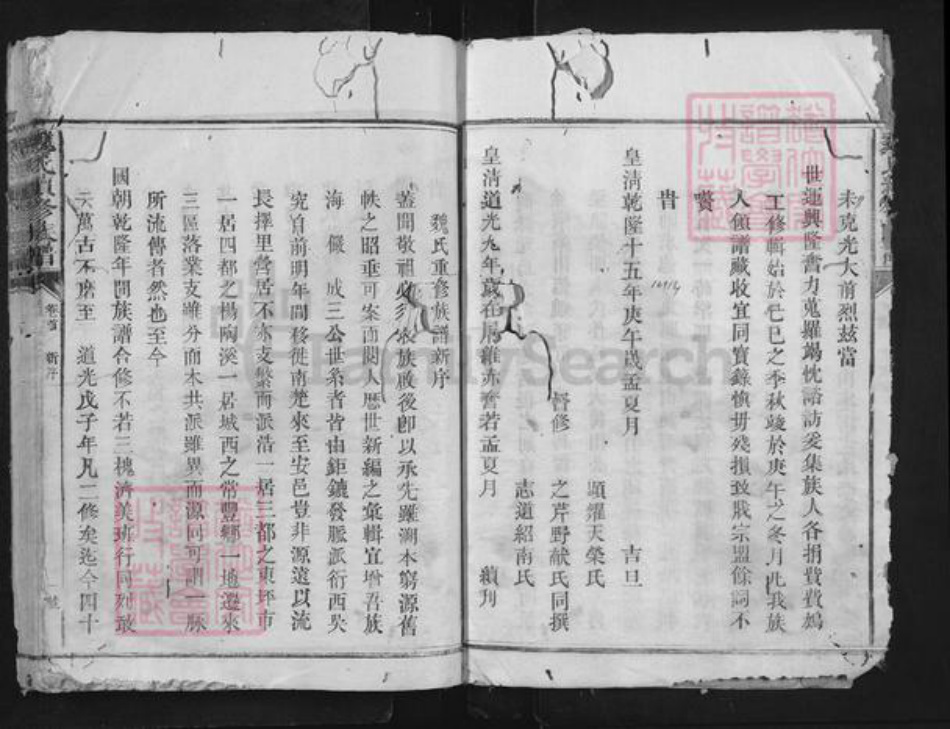 未克光大前烈茲當
世運興隆奮力蒐羅竭忱諮訪爰集族人各捐費費鳩
工修輯始於己巳之季秋竣於庚午之冬月此我族
人領譜藏收宜同實錄慎毋殘損致戕宗盟餘詞不
贅
皇清乾隆十五年庚午歲孟夏月 吉旦
顯耀天榮氏
督修 之芹野献氏同撰
志道紹南氏
皇清道光九年歲在屠維赤奮若孟夏月 續刊
魏氏重修族譜新序
蓋聞敬祖必 收族啟後卽以承先雖溯本窮源舊
帙之昭垂可案而閱人歷世新編之彙輯宜增吾族
海 儼 成三公世系者皆由鉅鏕發脈派衍西
究自前明年間移徙南楚來至安邑豈非源遠以流
長擇里營居不亦支繁而派浩一居三都之東坪市
一居四都之楊陶溪一居城西之常豐鄉一地遷來
三區落業支雖分而木共派雖異而源同可謂一脈
所流傳者然也至今
國朝乾隆年間族譜合修不若三槐濟美班行同列敢
云萬古不磨至 道光戊子年凡二修矣迄今四十
魏氏重修族譜
卷首
新序
FamilySearch